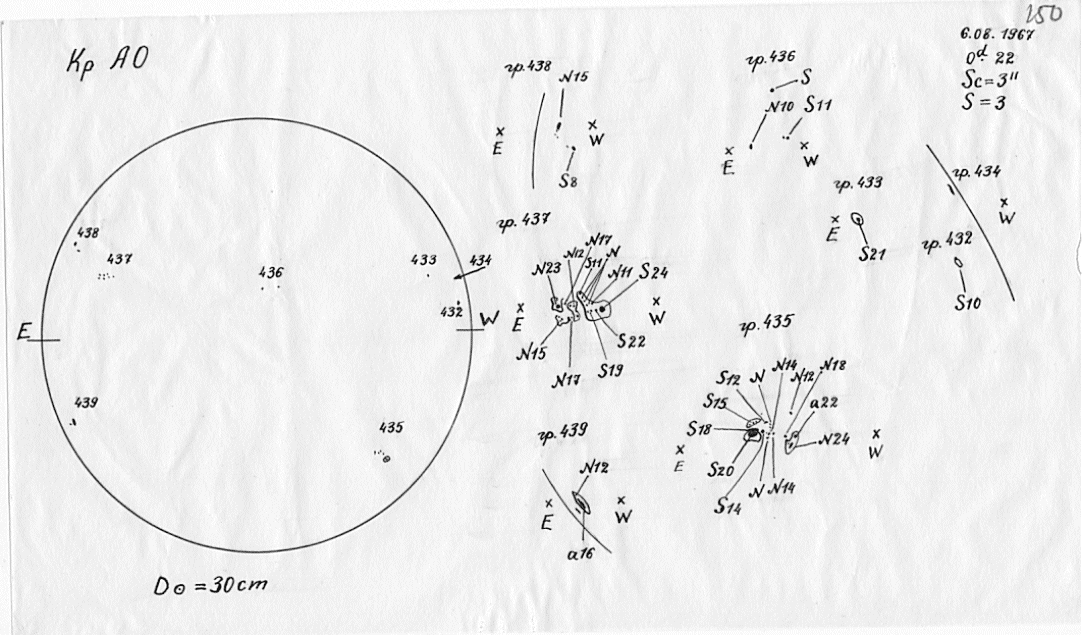 150
Кр АО
6.08.1967
0d. 22
Sc=3"
S=3
438
437
436
433
434
432
E
W
439
435
D⊙=30cm
гр.438
N15
E
W
S8
гр.436
S
N10 S11
E
W
гр.433
E
S21
гр.434
W
гр.432
S10
гр.437
N17
N12
S11
N
N23
N11
S24
E
W
S22
N15
S19
N17
гр.435
S12
N
N14
N12
N18
S15
a22
S18
N24
E
W
S20
S14
N
N14
гр.439
N12
E
W
a16